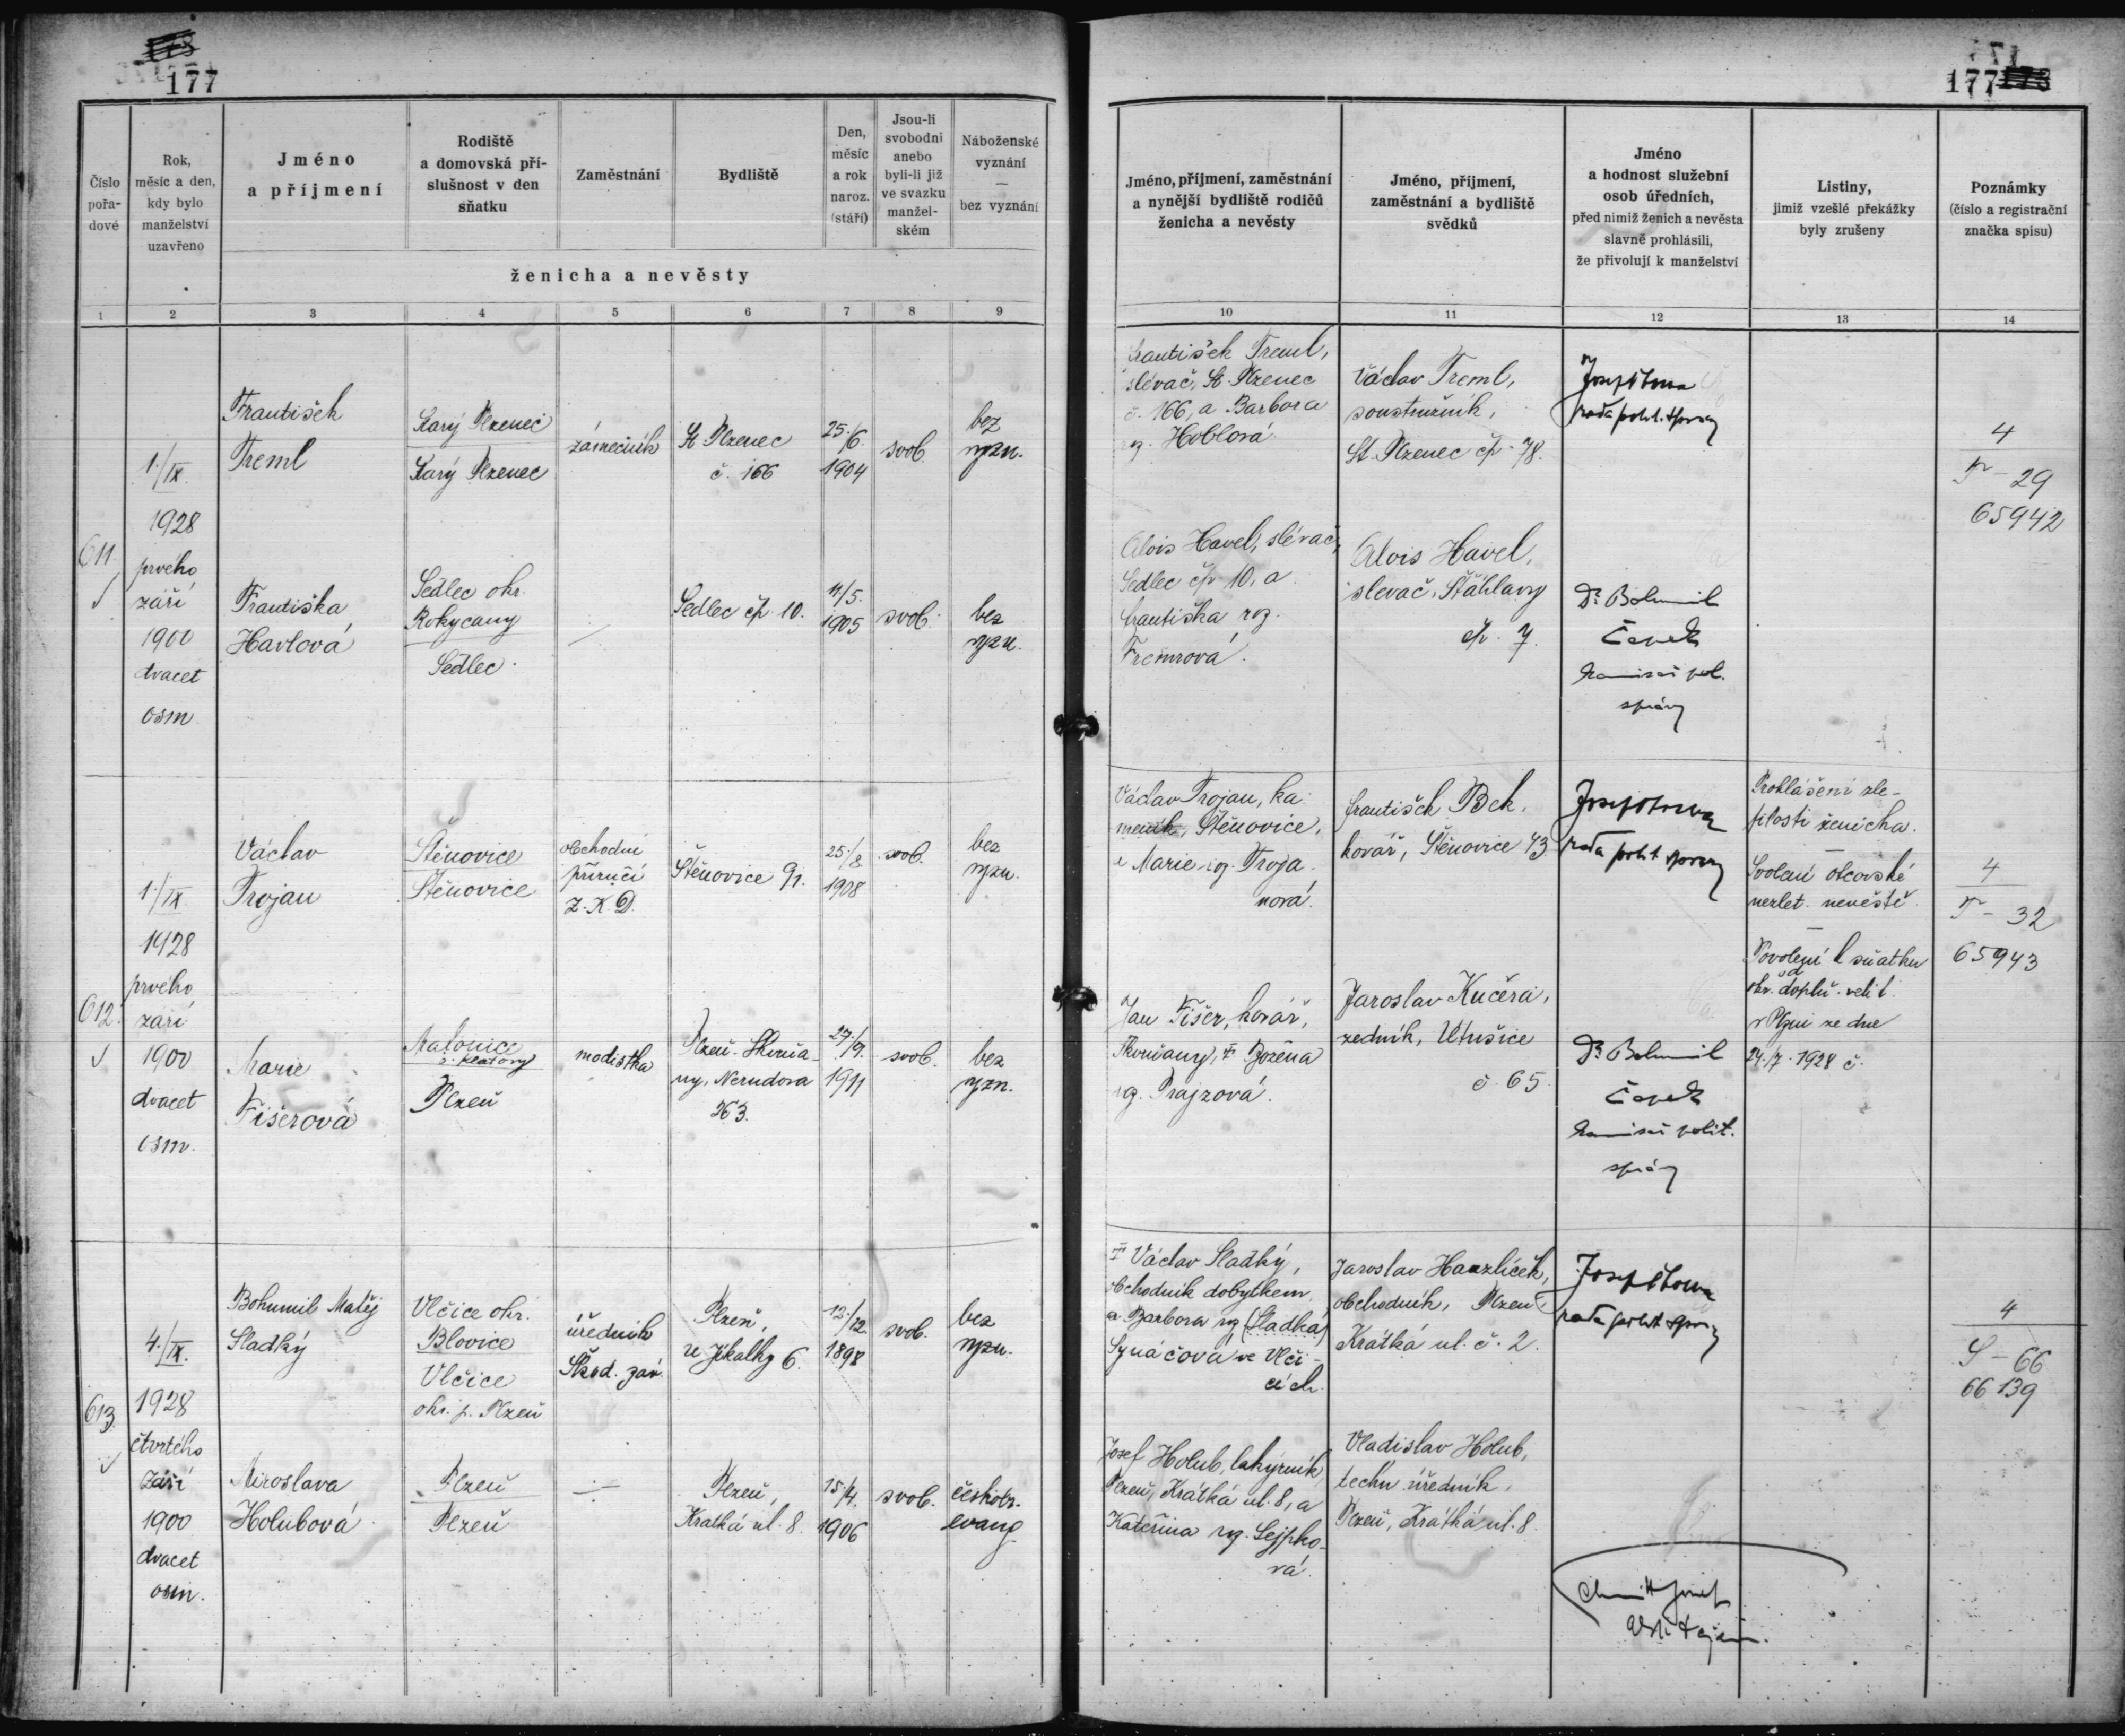 177
177
Číslo pořadové
Rok, měsíc a den, kdy bylo manželství uzavřeno
Jméno a příjmení
Rodiště a domovská příslušnost v den sňatku
Zaměstnání
Bydliště
Den, měsíc a rok naroz. (stáří)
Jsou-li svobodni anebo byli-li již ve svazku manželském
Náboženské vyznání — bez vyznání
ženicha a nevěsty
Jméno, příjmení, zaměstnání a nynější bydliště rodičů ženicha a nevěsty
Jméno, příjmení, zaměstnání a bydliště svědků
Jméno a hodnost služební osob úředních, před nimiž ženich a nevěsta slavně prohlásili, že přivolují k manželství
Listiny, jimiž vzešlé překážky byly zrušeny
Poznámky (číslo a registrační značka spisu)
1 2 3 4 5 6 7 8 9 10 11 12 13 14
611.
1./IX.
1928
prvého
září
1900
dvacet
osm
František
Treml
Starý Plzenec
Starý Plzenec
zámečník
St. Plzenec
č. 166
25./6.
1904
svob.
bez
vyzn.
František Treml,
slévač, St. Plzenec
č. 166, a Barbora
Václav Treml,
soustružník,
St. Plzenec čp. 78.
rada polit. správy
4
T - 29
65942
Františka
Havlová
Sedlec okr.
Rokycany
Sedlec
Sedlec čp. 10.
11/5.
1905
svob.
bez
vyzn.
Alois Havel, slévač,
Sedlec čp. 10, a
Františka roz.
Alois Havel,
slevač, Šťáhlavy
čp. 7.
Dr. Bohumil
Čapek
komisař pol.
správy
612.
1./IX
1928
prvého
září
1900
dvacet
osm.
Václav
Trojan
Štěnovice
Štěnovice
obchodní
příručí
Z. K. D.
Štěnovice 91.
25./8.
1908
svob.
bez
vyzn.
Václav Trojan, ka-
meník, Štěnovice,
a Marie roz. Troja-
nová.
František Bek,
kovář, Štěnovice 43
rada polit. správy
Prohlášení zle-
tilosti ženicha.
Svolení otcovské
nezlet. nevěstě
Povolení k sňatku
od
okr. doplň. velit.
v Plzni ze dne
24./7. 1928 č.
4
T - 32
65943
Marie
Fišerová
Plzeň
modistka
Plzeň-Skvrňa-
ny, Nerudova
27./9.
1911
svob.
bez
vyzn.
Jan Fišer, kovář,
Skvrňany, † Božena
roz. Prajzová.
Jaroslav Kučera,
zedník, Útušice
č. 65.
Dr. Bohumil
Čapek
komisař polit.
správy
613.
4./IX.
1928
čtvrtého
září
1900
dvacet
osm.
Bohumil Matěj
Sladký
Vlčice okr.
Blovice
Vlčice
okr. p. Plzeň
úředník
Škod. záv.
Plzeň,
u Jikalky 6.
12./12.
1898
svob.
bez
vyzn.
† Václav Sladký,
obchodník dobytkem,
a Barbora roz. (Sladká)
Synáčová ve Vlči-
cích.
Jaroslav Hauzlíček,
obchodník, Plzeň,
Krátká ul. č. 2.
rada polit. správy
4
S - 66
66139
Miroslava
Holubová
Plzeň
Plzeň
Plzeň,
Krátká ul. 8.
15/4.
1906
svob.
českobr.
evang.
Josef Holub, lakýrník,
Plzeň, Krátká ul. 8, a
Kateřina roz. Lejpko-
vá.
Vladislav Holub,
techn. úředník,
Plzeň, Krátká ul. 8.